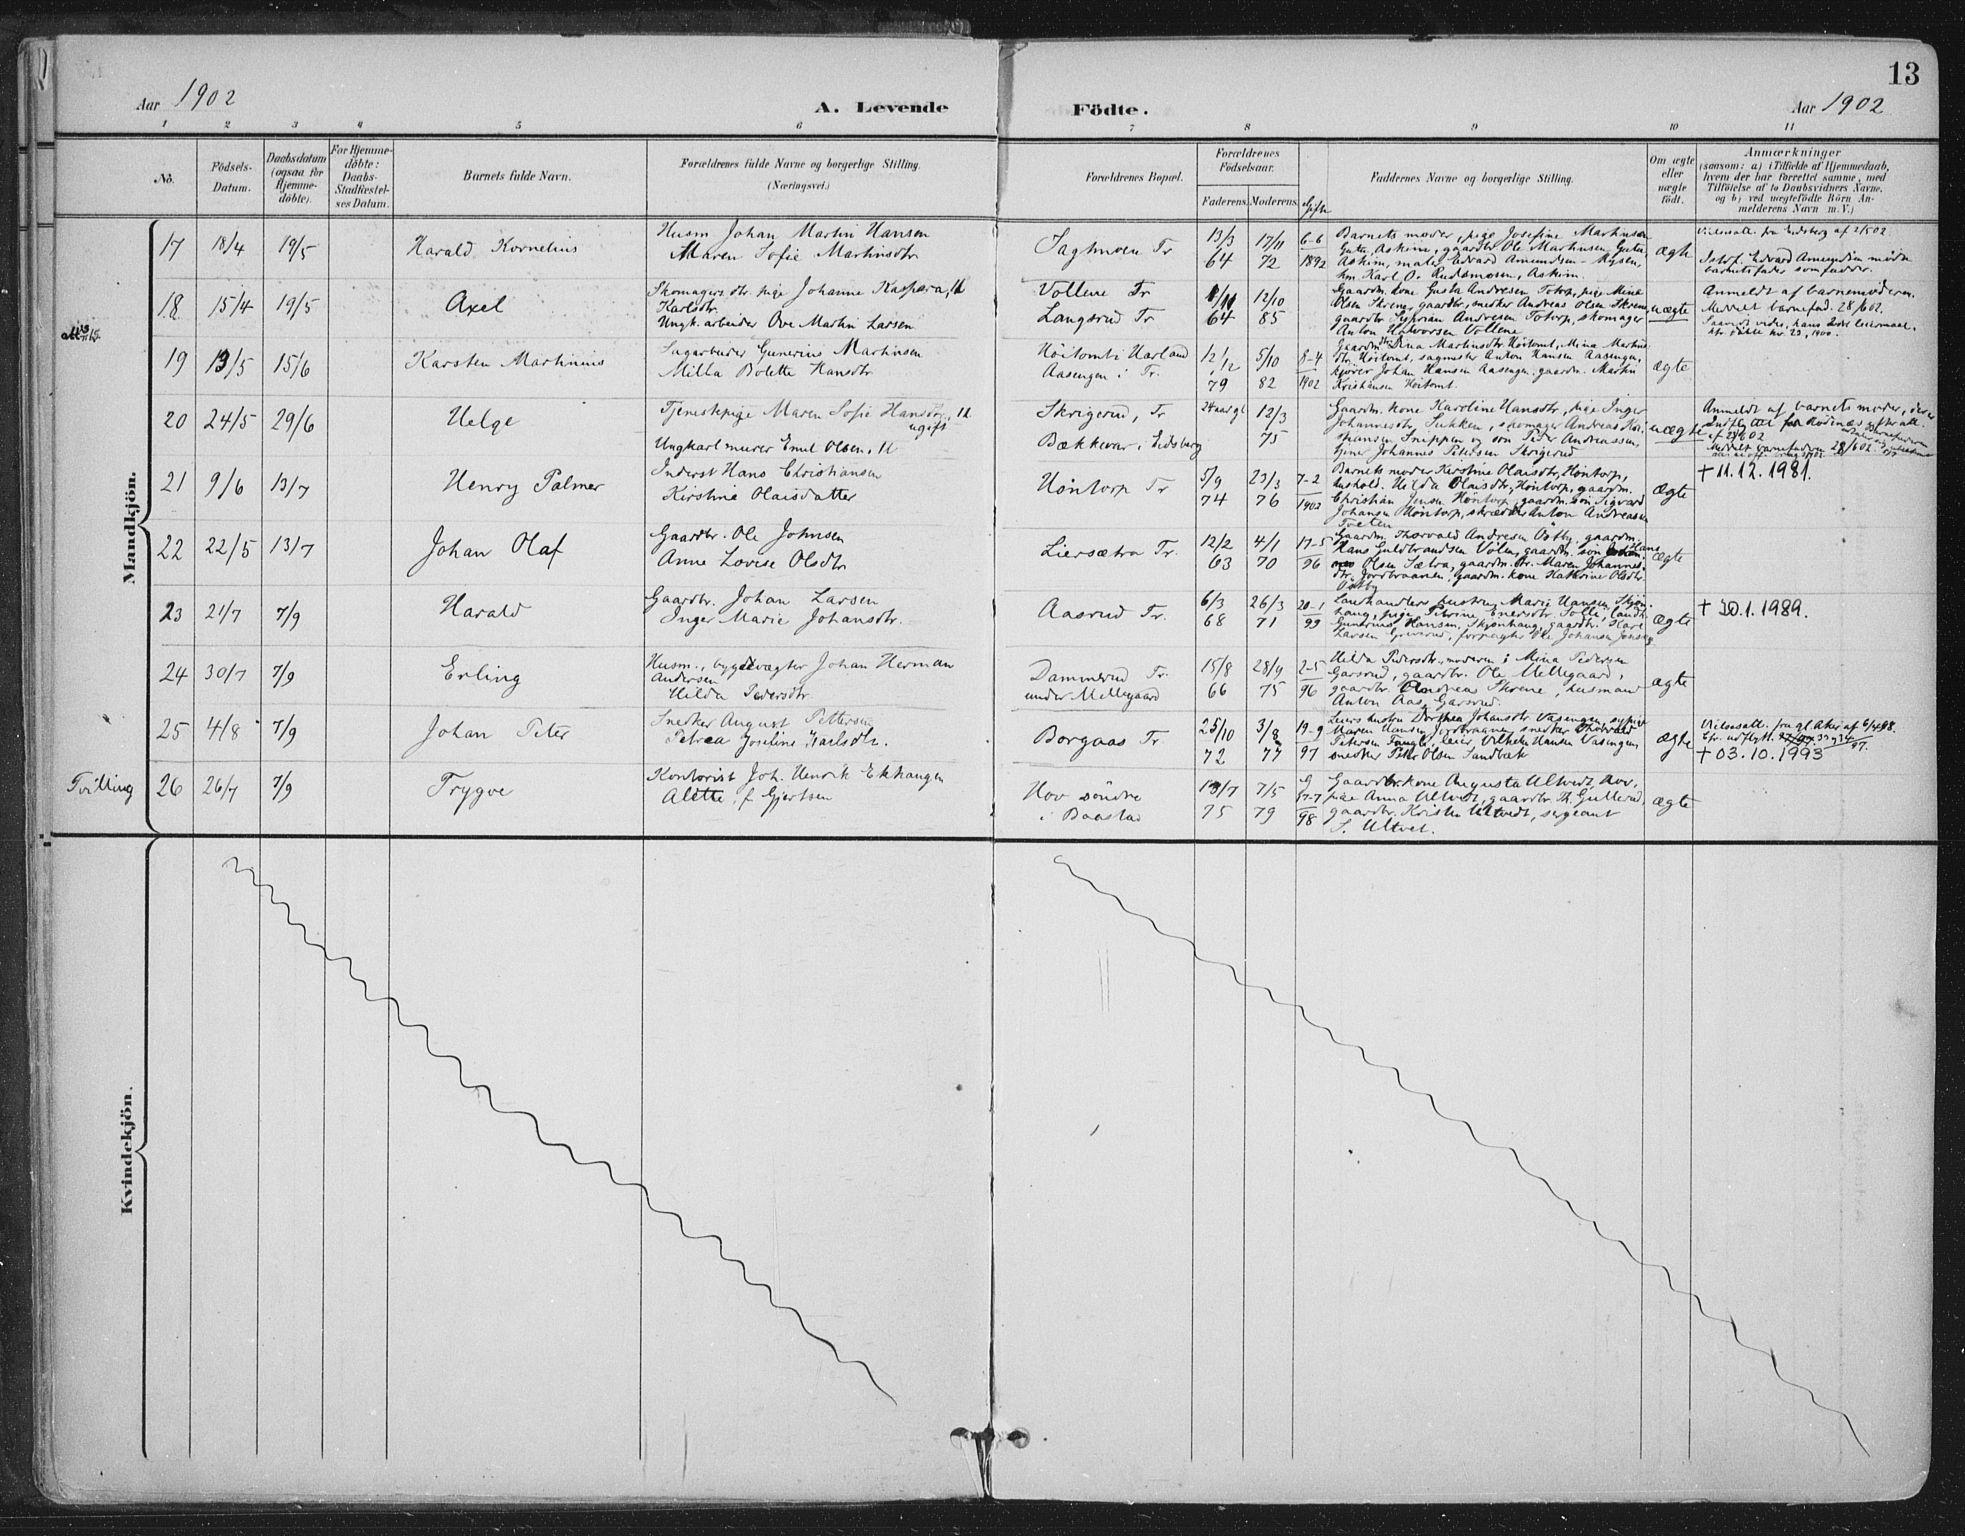 13
Aar 1902
A. Levende Födte.
Aar 1902
1 2 3 4 5 6 7 8 9 10 11
No.
Födsels-Datum.
Daabsdatum (ogsaa for Hjemme-döbte).
For Hjemme-döbte: Daabs-Stadfæstel-ses Datum.
Barnets fulde Navn.
Forældrenes fulde Navne og borgerlige Stilling.
(Næringsvei.)
Forældrenes Bopæl.
Forældrenes Födselsaar.
Faderens. Moderens.
Gifte
Faddernes Navne og borgerlige Stilling.
Om ægte eller uægte födt.
Anmærkninger
(saasom: a) i Tilfælde af Hjemmedaab,
hvem der har forrettet samme, med
Tilföielse af to Daabsvidners Navne,
og b) ved uægtefödte Börn An-
melderens Navn m. V.)
Mandkjön.
17 18/4 19/5 Harald Kornelius
Husm Johan Martin Hansen
Maren Sofie Martinsdtr
Sagmoen Tr
13/3 64 17/11 72 6-6 1892
Barnets moder, pige Josefine Martinsen
Guten, Askim, gaardbr Ole Martinsen Guten,
Askim, maler Edvard Amundsen Mysen,
hm. Karl O. Rudsmosen, Askim.
ægte
18 15/4 19/5 Axel
Skomagers dtr. pige Johanne Kaspara, U
Karlsdtr.
Ungk. arbeider Ove Martin Larsen
Vollene Tr
Langsrud Tr
1/11 64 12/10 85
Gaardm. kone Gusta Andresen Totorp, pige Mina
Olsen Skrene, gaardbr, snedker Andreas Olsen Skrene,
gaardbr Syprian Andresen Totorp, skomager
Anton Halvorsen Vollene
uægte
Anmeldt af barnemoderen.
Meddelt barnefad. 28/6 02.
19 13/5 15/6 Karsten Martinius
Sagarbeider Gunerius Martinsen
Milla Bolette Hansdtr
Höitomt i Harland
Aasengen i Tr.
12/12 79 5/10 82 8-4 1902
Gaardm. dtr Dina Martinsdtr Höitomt, Mina Martins
dtr. Höitomt, sagmester Anton Hansen Aasengen,
kjörer Johan Hansen Aasengen, gaardm. Martin
Kristiansen Höitomt.
ægte
20 24/5 29/6 Helge
Tjenestepige Maren Sofie Hansdtr, U
ugift
Ungkarl murer Emil Olsen, U
Skrigerud, Tr
Bækkevar i Eidsberg
24 aar gl 12/3 75
Gaardm. kone Karoline Hansdtr, pige Inger
Johannesdtr Sukken, skomager Andreas Kri-
stiansen Sneppen og sön Peder Andreassen,
Gine Johannes Petersen Skrigerud
uægte
Anmeldt af barnets moder,
21 9/6 13/7 Henry Palmer
Inderst Hans Christiansen
Kirstine Olaisdatter
Höntorp Tr
5/9 74 23/3 76 7-2 1902
Barnets moder Kirstine Olaisdtr, Höntorp,
hushold. Hilda Olaisdtr, Höntorp, gaardm.
Christian Jensen Höntorp, gaardm. sön Sigvard
Johansen Höntorp, skrædder Anton Andreasen
Tveten
ægte
† 11.12.1981.
22 22/5 13/7 Johan Olaf
Gaardbr. Ole Johnsen
Anne Lovise Olsdtr
Liersætra Tr.
12/2 63 4/1 70 17-5 96
Gaardm. Thorvald Andresen Östby, gaardm.
Hans Guldbrandsen Völen, gaardm. sön Hans
Olsen Sætra, gaardm. dtr. Maren Johannes-
dtr. Jordbraanen, gaardm. kone Kathrine Olsdtr.
Östby
ægte
23 21/7 7/9 Harald
Gaardbr. Johan Larsen
Inger Marie Johansdtr.
Aasrud Tr.
6/3 68 26/3 71 20-1 99
Landhandlers hustru Marie Hansen Skjön-
haug, pige Petrine Enersdtr. Solli, landh.
Gunerius Hansen, Skjönhaug, gaardbr. Karl
Larsen Greverud, forpagter Ole Johansen Jonsrg
ægte
† 20.1.1989.
24 30/7 7/9 Erling
Husm., bygdevægter Johan Herman
Andersen
Hilda Pedersdtr
Dammerud Tr.
under Mellegaard
15/8 66 28/9 75 2-5 96
Hilda Pedersdtr., moderen i Mina Pedersen
Garsrud, gaardbr. Ole Mellegaard,
gaardbr. Andreas Skrene, husmand
Anton Aas, Garsrud.
ægte
25 4/8 7/9 Johan Peter
Snedker August Pettersen
Petrea Josefine Karlsdtr.
Borgaas Tr
25/10 72 3/8 77 19-9 97
Leiers hustru Dorthea Johansdtr Vasengen, sypige
Maren Hansen Jordbraanen, snedker Thorvald
Petersen, leier Vilhelm Hansen Vasengen,
snedker Peter Olsen Sandbæk
ægte
† 03.10.1993
Tvilling 26 26/7 7/9 Trygve
Kontorist Joh. Henrik Ekhaugen
Alette, f. Gjertsen
Hov söndre
i Baastad
13/7 75 7/5 79 g 17-7 98
Gaardbr. kone Augusta Ultvedt, Hov,
pige Anna Ultvedt, gaardbr. Th. Gullerud,
gaardbr. Kristen Ultvedt, sergeant
S. Ultvet.
ægte
Kvindekjön.